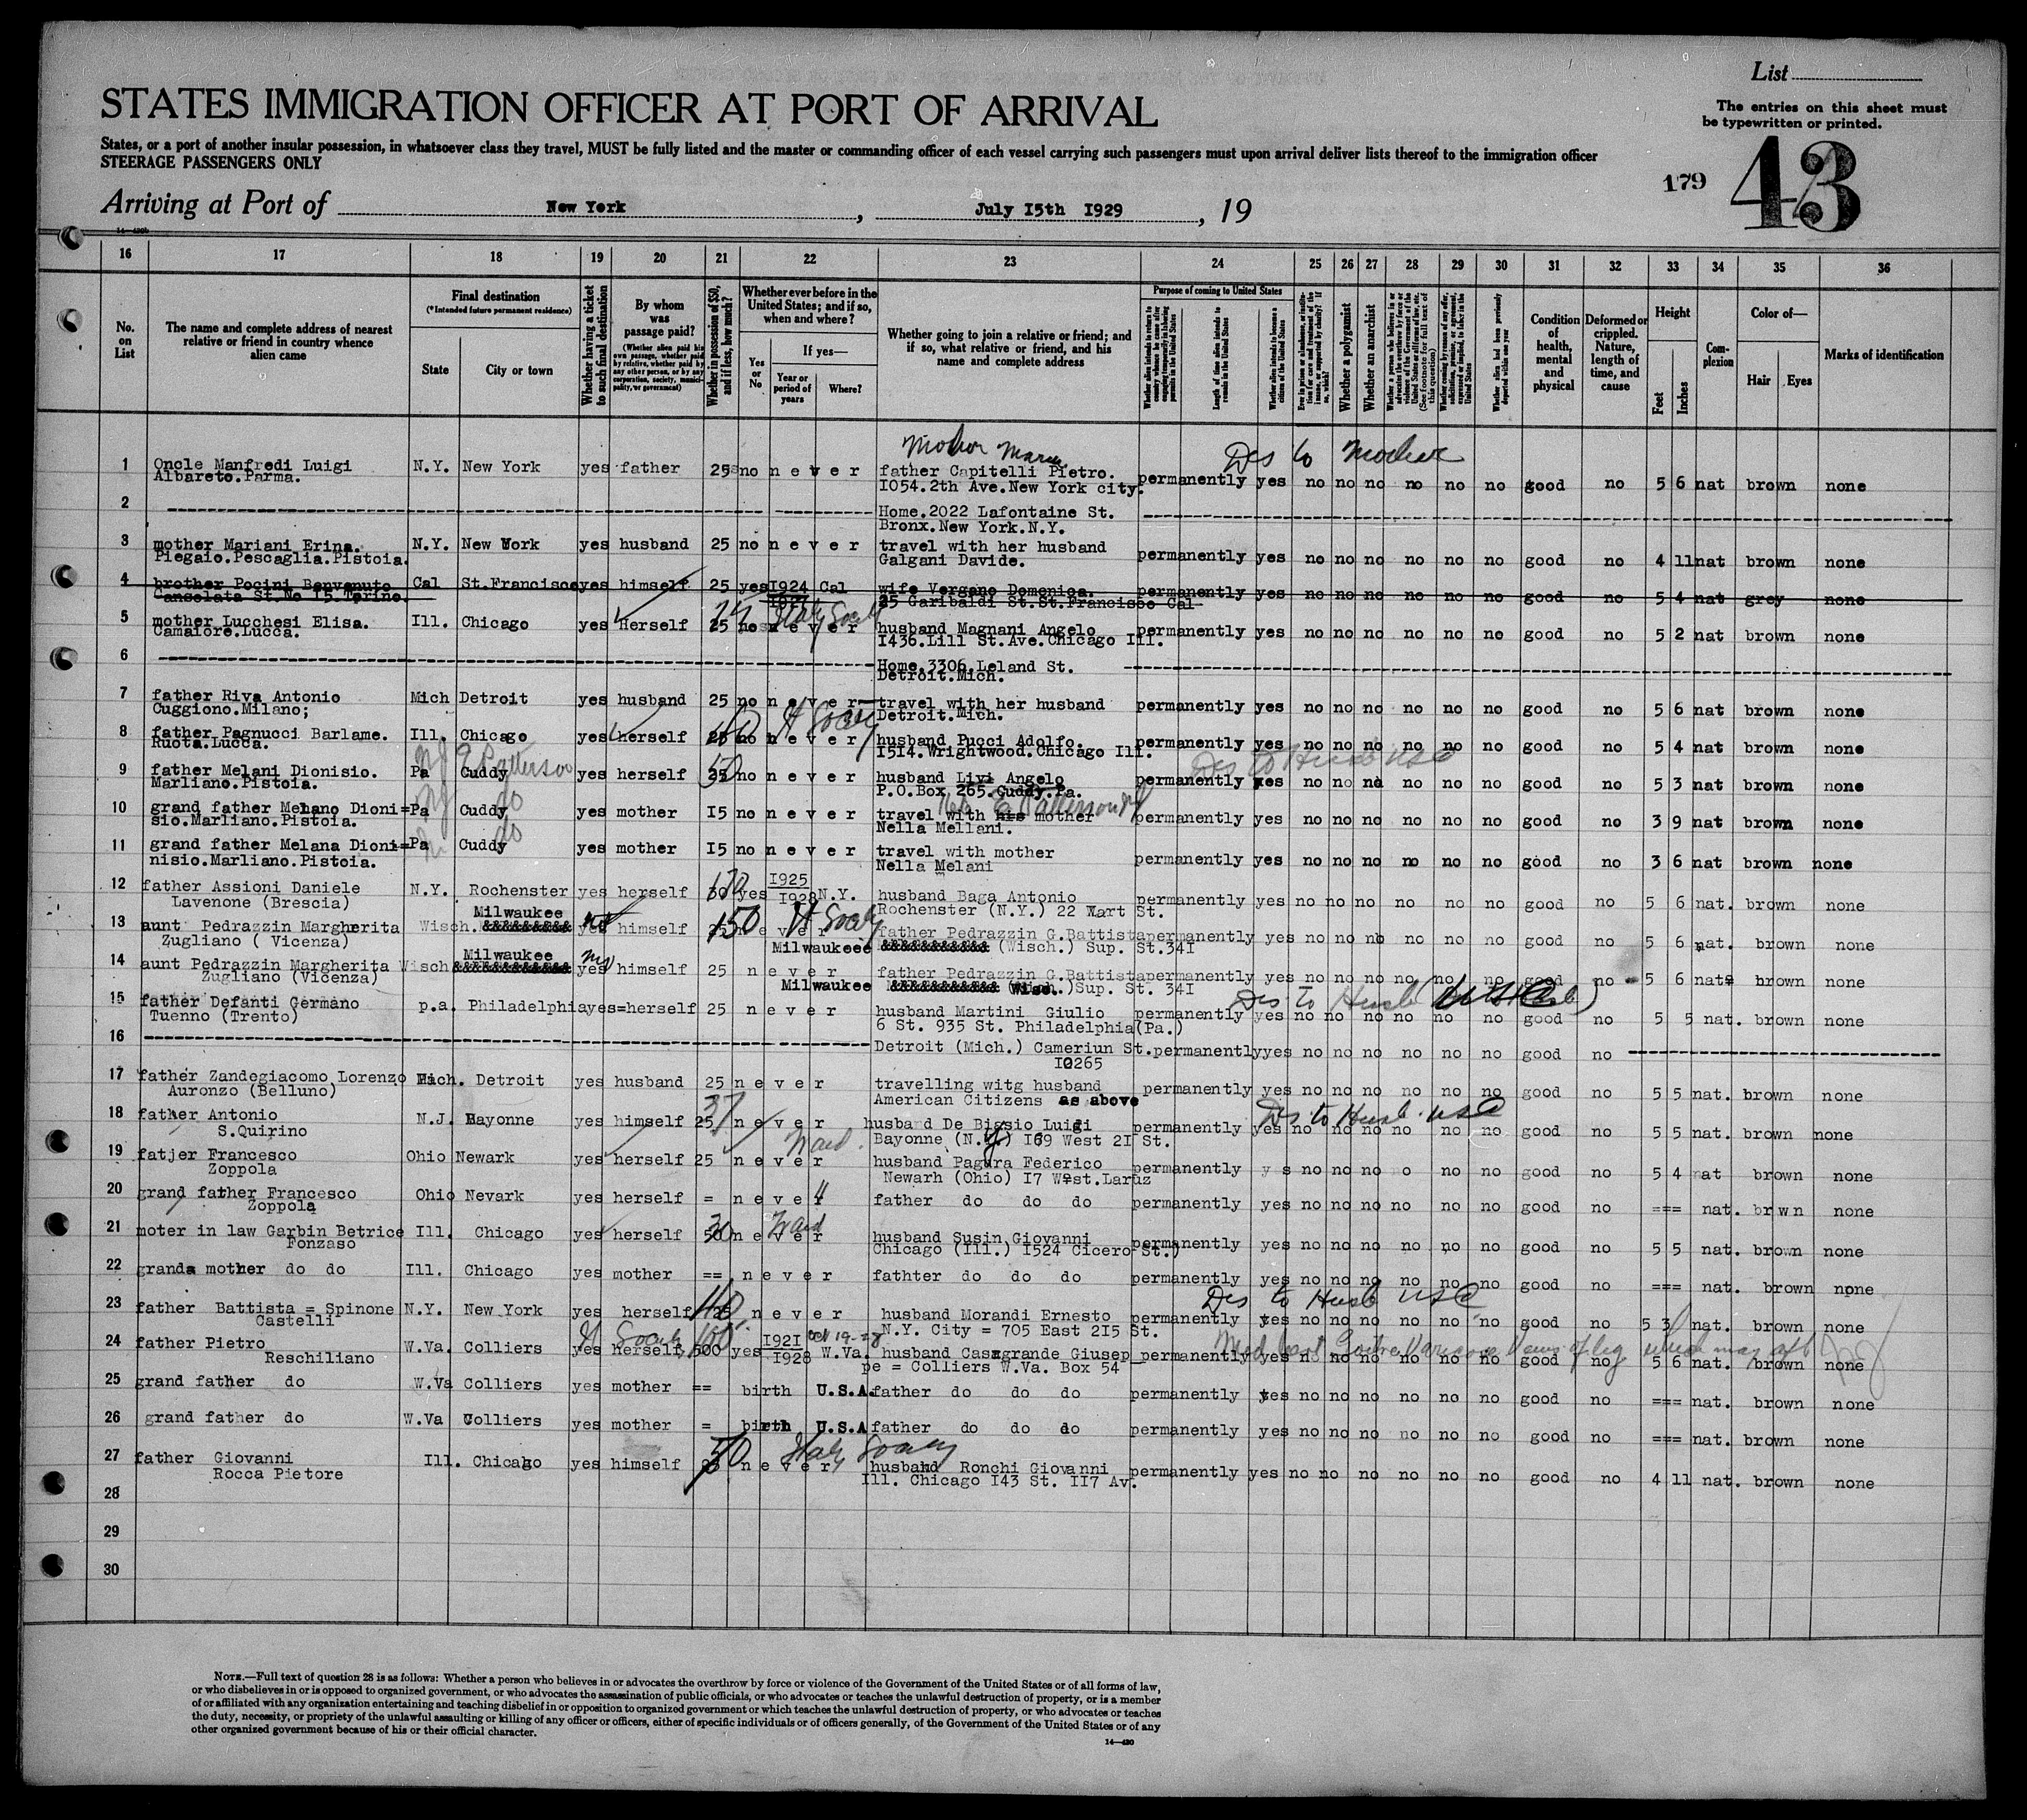 List
STATES IMMIGRATION OFFICER AT PORT OF ARRIVAL
The entries on this sheet must
be typewritten or printed.
States, or a port of another insular possession, in whatsoever class they travel, MUST be fully listed and the master or commanding officer of each vessel carrying such passengers must upon arrival deliver lists thereof to the immigration officer
STEERAGE PASSENGERS ONLY
179 43
Arriving at Port of New York, July I5th I929, 19
14—430b
16 17 18 19 20 21 22 23 24 25 26 27 28 29 30 31 32 33 34 35 36
No. on List
The name and complete address of nearest relative or friend in country whence alien came
Final destination
(*Intended future permanent residence)
State
City or town
Whether having a ticket to such final destination
By whom was passage paid?
(Whether alien paid his own passage, whether paid by relative, whether paid by any other person, or by any corporation, society, municipality, or government)
Whether in possession of $50, and if less, how much?
Whether ever before in the United States; and if so, when and where?
Yes or No
If yes—
Year or period of years
Where?
Whether going to join a relative or friend; and if so, what relative or friend, and his name and complete address
Purpose of coming to United States
Length of time alien intends to remain in the United States
Whether alien intends to become a citizen of the United States
Whether a polygamist
Whether an anarchist
Condition of health, mental and physical
Deformed or crippled. Nature, length of time, and cause
Height
Feet
Inches
Complexion
Color of—
Hair
Eyes
Marks of identification
Des to Mother
1 Oncle Manfredi Luigi N.Y. New York yes father 25 no n e v e r father Capitelli Pietro. permanently yes no no no no no no good no 5 6 nat brown none
Albareto.Parma. I054.2th Ave.New York city.
2 Home.2022 Lafontaine St.
Bronx.New York.N.Y.
3 mother Mariani Erina. N.Y. New York yes husband 25 no n e v e r travel with her husband permanently yes no no no no no no good no 4 11 nat brown none
Piegaio.Pescaglia.Pistoia. Galgani Davide.
4 brother Pocini Benvenuto Cal St.Francisco yes himself 25 yes I924 Cal wife Vergano Domenica. permanently yes no no no no no no good no 5 4 nat grey none
Cansolata St.No I5.Torino. 25 Garibaldi St.St.Francisco Cal
5 mother Lucchesi Elisa. Ill. Chicago yes herself 25 no n e v e r husband Magnani Angelo permanently yes no no no no no no good no 5 2 nat brown none
Camaiore.Lucca. I436.Lill St.Ave.Chicago Ill.
6 Home.3306.Leland St.
Detroit.Mich.
7 father Riva Antonio Mich Detroit yes husband 25 no n e v e r travel with her husband permanently yes no no no no no no good no 5 6 nat brown none
Cuggiono.Milano; Detroit.Mich.
8 father Pagnucci Barlame. Ill. Chicago yes herself no n e v e r husband Pucci Adolfo. permanently yes no no no no no no good no 5 4 nat brown none
Ruota.Lucca. I5I4.Wrightwood.Chicago Ill.
Des to Husb USC
9 father Melani Dionisio. Pa Cuddy yes herself 25 no n e v e r husband Livi Angelo permanently yes no no no no no no good no 5 3 nat brown none
Marliano.Pistoia. P.O.Box 265.Cuddy.Pa.
10 grand father Melano Dioni= Pa Cuddy do yes mother I5 no n e v e r travel with his mother permanently yes no no no no no no good no 3 9 nat brown none
sio.Marliano.Pistoia. Nella Mellani.
11 grand father Melana Dioni= Pa Cuddy do yes mother I5 no n e v e r travel with mother permanently yes no no no no no no good no 3 6 nat brown none
nisio.Marliano.Pistoia. Nella Melani
12 father Assioni Daniele N.Y. Rochenster yes herself yes I925 I928 N.Y. husband Baga Antonio permanently yes no no no no no no good no 5 6 nat. brown none
Lavenone (Brescia) Rochenster (N.Y.) 22 Wart St.
13 aunt Pedrazzin Margherita Wisch. Milwaukee yes himself 150 n e v e r father Pedrazzin G.Battista permanently yes no no no no no no good no 5 6 nat. brown none
Zugliano ( Vicenza) Milwaukeee (Wisch.) Sup. St.34I
14 aunt Pedrazzin Margherita Wisch Milwaukee yes himself 25 n e v e r father Pedrazzin G.Battista permanently yes no no no no no no good no 5 6 nat brown none
Zugliano (Vicenza) Milwaukee Sup. St. 34I
15 father Defanti Germano p.a. Philadelphia yes=herself 25 n e v e r husband Martini Giulio permanently yes no no no no no no good no 5 5 nat. brown none
Tuenno (Trento) 6 St. 935 St. Philadelphia(Pa.)
16 Detroit (Mich.) Cameriun St. permanently yes no no no no no no good no
I0265
17 father Zandegiacomo Lorenzo Mich. Detroit yes husband 25 n e v e r travelling witg husband permanently yes no no no no no no good no 5 5 nat. brown none
Auronzo (Belluno) American Citizens as above
Des to Husb. USC
18 father Antonio N.J. Bayonne yes himself 25 n e v e r husband De Biasio Luigi permanently yes no no no no no no good no 5 5 nat. brown none
S.Quirino Bayonne (N.J.) I69 West 2I St.
19 fatjer Francesco Ohio Newark yes herself 25 n e v e r husband Pagura Federico permanently y s no no no o no no good no 5 4 nat brown none
Zoppola Newarh (Ohio) I7 West.Laruz
20 grand father Francesco Ohio Nevark yes herself = n e v e r father do do do permanently yes no no no no no no good no === nat. br wn none
Zoppola
21 moter in law Garbin Betrice Ill. Chicago yes herself n e v e r husband Susin Giovanni permanently yes no no no no no no good no 5 5 nat. brown none
Fonzaso Chicago (Ill.) I524 Cicero St.)
22 granda mother do do Ill. Chicago yes mother == n e v e r fathter do do do permanently yes no no no no no no good no === nat. brown none
Des to Husb USC
23 father Battista = Spinone N.Y. New York yes herself n e v e r husband Morandi Ernesto permanently yes no no no no no no good no 5 3 nat. brown none
Castelli N.Y. City = 705 East 2I5 St.
24 father Pietro W.Va. Colliers yes herself 500 yes I92I I928 W.Va. husband Casagrande Giusep permanently yes no no no no no no good no 5 6 nat. brown none
Reschiliano pe = Colliers W.Va. Box 54
25 grand father do W.Va Colliers yes mother == birth U.S.A. father do do do permanently yes no no no no no no good no === nat. brown none
26 grand father do W.Va Colliers yes mother = birth U.S.A father do do do permanently yes no no no no no no good no === nat. brown none
27 father Giovanni Ill. Chicago yes himself n e v e r husband Ronchi Giovanni permanently yes no no no no no no good no 4 11 nat. brown none
Rocca Pietore Ill. Chicago I43 St. II7 Av.
28
29
30
NOTE.—Full text of question 28 is as follows: Whether a person who believes in or advocates the overthrow by force or violence of the Government of the United States or of all forms of law,
or who disbelieves in or is opposed to organized government, or who advocates the assassination of public officials, or who advocates or teaches the unlawful destruction of property, or is a member
of or affiliated with any organization entertaining and teaching disbelief in or opposition to organized government or which teaches the unlawful destruction of property, or who advocates or teaches
the duty, necessity, or propriety of the unlawful assaulting or killing of any officer or officers, either of specific individuals or of officers generally, of the Government of the United States or of any
other organized government because of his or their official character.
14—430